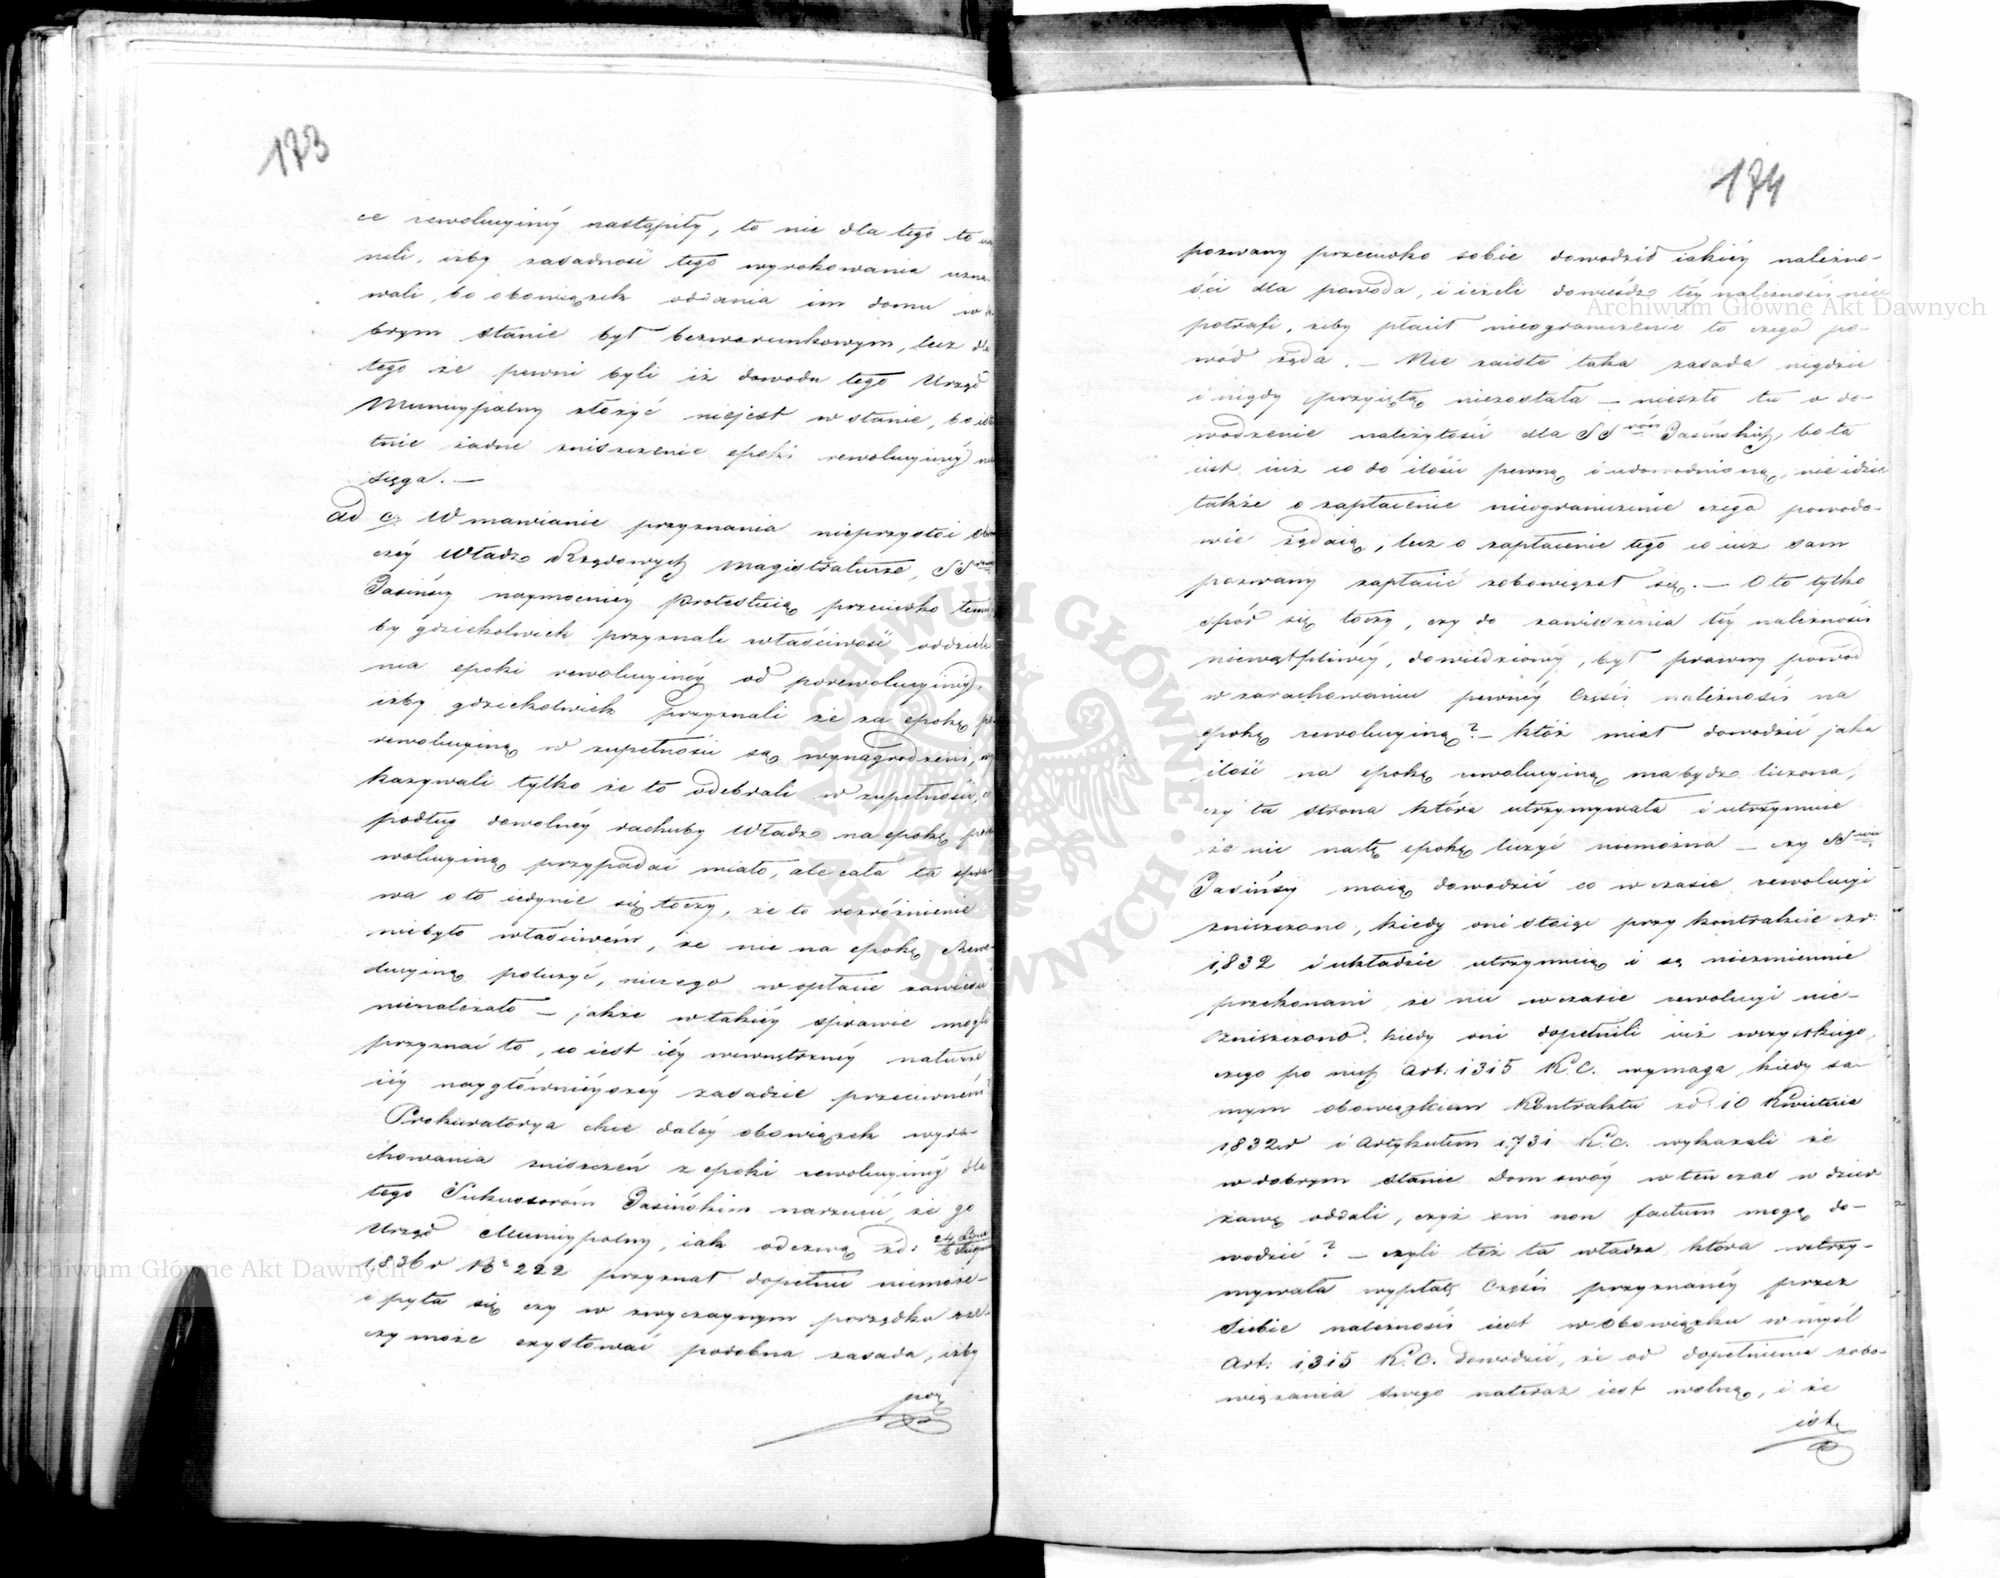 173
ce rewolucyinéy nastąpiły, to nie dla tego to
nili, iżby zasadność tego wyrokowania uzna-
wali, bo obowiązek oddania im domu w do
brym stanie był bezwarunkowym, lecz dla
tego że pewni byli iż dowodu tego Urząd
Municypalny złożyć niejest w stanie, bo isto
tnie żadne zniszczenie epoki rewolucyinéy nie
sięga. —
ad c, Wmawianie przyznania nieprzystoi
czéy Władz Rządowych Magistraturze, SSrowie
Jasińscy naymocniéy protestuią przeciwko temu
by gdziekolwiek przyznali właściwość oddziele
nia epoki rewolucyinéy od porewolucyinéy,
iżby gdziekolwiek przyznali że za epokę po-
rewolucyiną w zupełności są wynagrodzeni, wy
kazywali tylko że to odebrali w zupełności, co
podług dowolnéy rachuby Władz na epokę pore
wolucyiną przypadać miało, ale cała ta spra-
wa o to iedynie się toczy, że to rozróżnienie
niebyło właściwém, że nic na epokę Rewo-
lucyiną policzyć, niczego w opłacie zawiesić
nienależało — jakże w takiéy sprawie mogli
przyznać to, co iest iéy wewnętrznéy naturze
iéy naygłównieyszéy zasadzie przeciwném?
Prokuratorya chce daléy obowiązek wyra-
chowania zniszczeń z epoki rewolucyinéy dla
tego Sukcessoróm Jasińskim narzucić, że go
Urząd Municypalny, iak odezwą zd: 24 Lipca
1836 r No 222 przyznał dopełnić niemoże-
i pyta się czy w zwyczaynym porządku rze-
czy może exystować podobna zasada, iżby
poz
174
pozwany przeciwko sobie dowodził iakiéy należno-
ści dla powoda, i ieżeli dowieśdź téy należności nie
potrafi, żeby płacił nieograniczenie to czego po-
wód żąda. — Nie zaiste taka zasada nigdzie
i nigdy przyiętą niezostała — nieszło tu o do-
wodzenie należytości dla SSrów Jasińskich, bo ta
iest iuż co do ilości pewną i udowodnioną, nie idzie
także o zapłacenie nieograniczenie czego powodo-
wie żądaią, lecz o zapłacenie tego co iuż sam
pozwany zapłacić zobowiązał się. — O to tylko
spór się toczy, czy do zawieszenia téy należności
niewątpliwéy, dowiedzionéy, był prawny powód
w zarachowaniu pewnéy Części należności na
epokę rewolucyiną? — któż miał dowodzić jaka
ilość na epokę rewolucyiną ma bydź liczona,
czy ta strona która utrzymywała i utrzymuie
że nic na tę epokę liczyć niemożna — czy SSwie
Jasińscy maią dowodzić co w czasie rewolucyi
zniszczono, kiedy oni stoiąc przy kontrakcie z r:
1,832 i układzie utrzymuią i są niezmiennie
przekonani że nic w czasie rewolucyi nie-
zniszczono, kiedy oni dopełnili iuż wszystkiego,
czego po nich Art: 1315 K.C. wymaga, kiedy sa-
mym obowiązkiem Kontraktu zd: 10 Kwietnia
1,832 r i Artykułem 1,731 K.C. wykazali że
w dobrym stanie Dom swóy w ten czas w dzier
żawę oddali, czyż oni non factum mogą do-
wodzić? — czyli też ta władza, która wstrzy-
mywała wypłatę Części przyznanéy przez
Siebie należności iest w obowiązku w myśl
Art: 1,315 K.C. dowodzić, że od dopełnienia zobo-
wiązania swego nateraz iest wolną, i że
ist
Archiwum Główne Akt Dawnych
Archiwum Główne Akt Dawnych
ARCHIWUM GŁÓWNE · AKT DAWNYCH ·